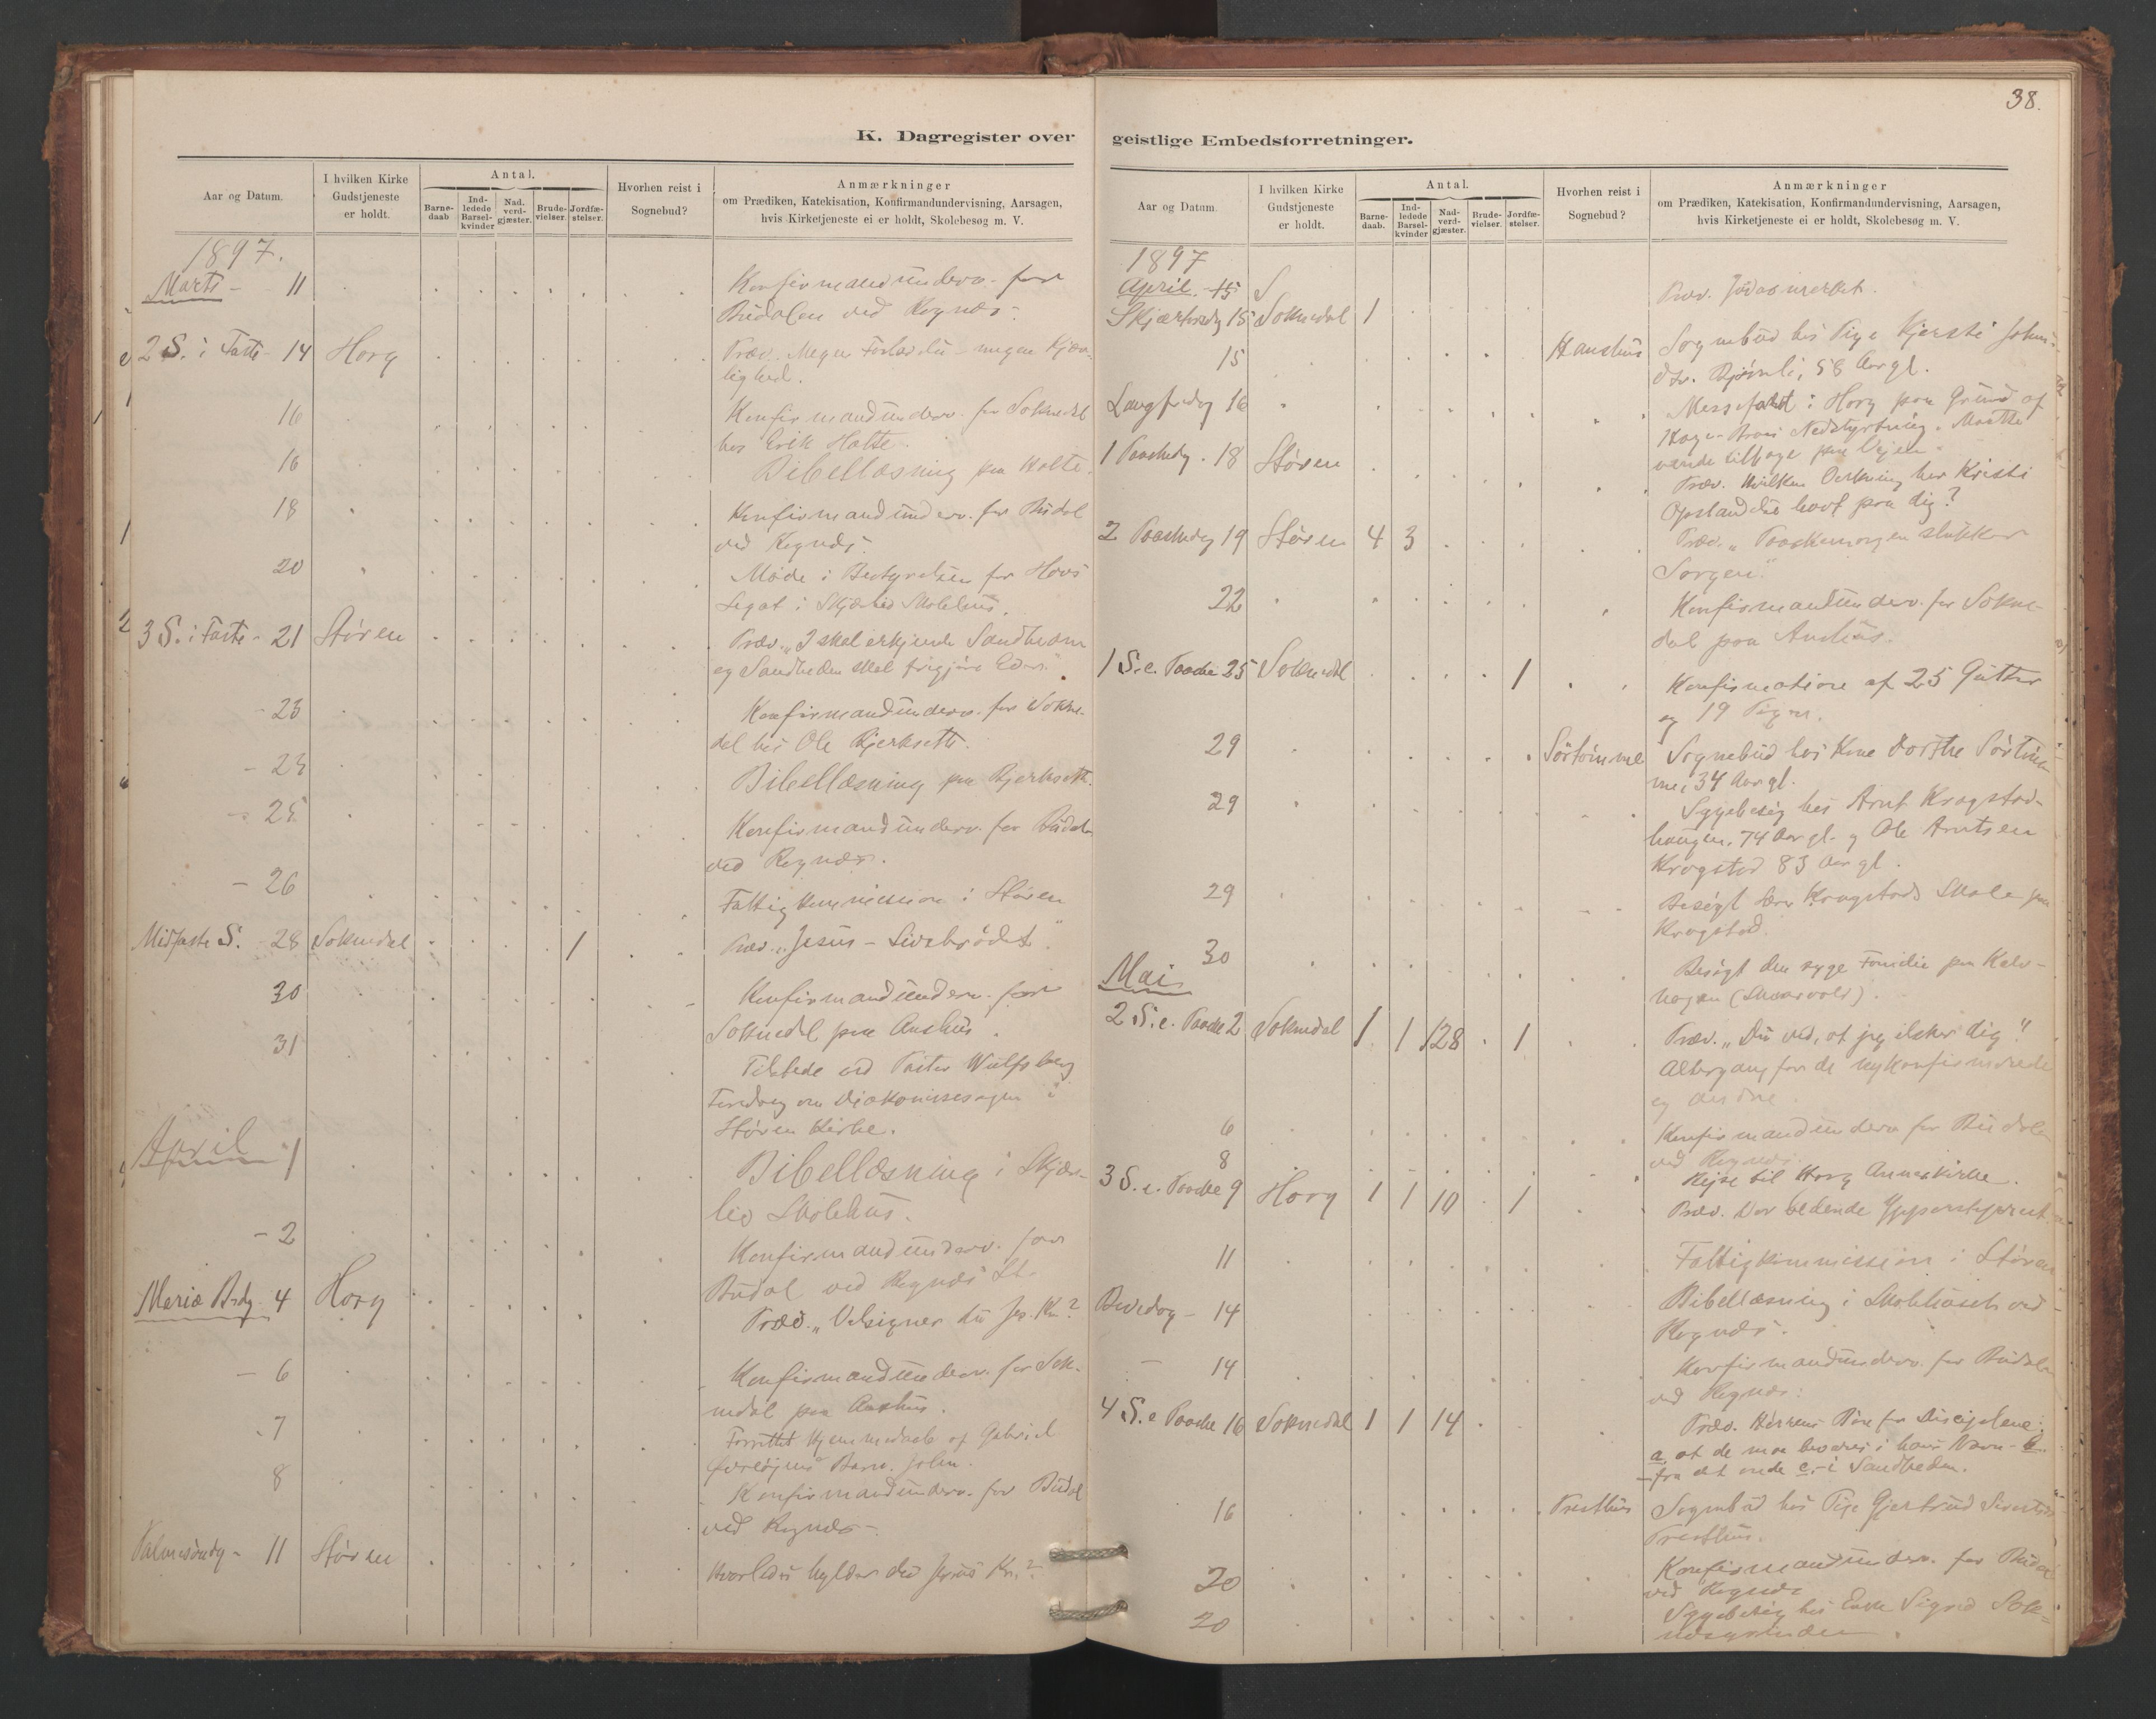 38.
K. Dagregister over
Aar og Datum.
I hvilken Kirke
Gudstjeneste
er holdt.
Antal.
Barne-
daab
Ind-
ledede
Barsel-
kvinder
Nad-
verd-
gjæster.
Brude-
vielser.
Jordfæ-
stelser.
Hvorhen reist i
Sognebud?
Anmærkninger
om Prædiken, Katekisation, Konfirmandundervisning, Aarsagen,
hvis Kirketjeneste ei er holdt, Skolebesøg m. V.
1897.
Marts - 11 Konfirmandunderv. for
Budalen ved Rognes.
2 S. i Faste - 14 Horg Præd. Megen Forladelse - megen Kjær-
lighed.
16 Konfirmandunderv. for Soknedal
hos Erik Holte.
16 Bibellæsning paa Holte.
18 Konfirmandunderv. for Budal
ved Rognes.
20 Møde i Bestyrelsen for Hovs
Legat i Skolehus.
3 S. i Faste - 21 Støren Præd. "I skal erkjende Sandheden
og Sandheden skal frigjøre Eder."
23 Konfirmandunderv. for Sokne-
dal hos Ole Bjerksett.
- 23 Bibellæsning paa Bjerksett.
- 25 Konfirmandunderv. for Budal
ved Rognes.
- 26 Fattigkommission i Støren
Midfaste S. - 28 Soknedal 1 Præd. "Jesus - Livsbrødet".
30 Konfirmandunderv. for
Soknedal paa Aushus.
31 Tilstede ved Pastor Wulfsberg
Foredrag om Diakonissesagen i
Støren Kirke.
April 1 Bibellæsning i Skjær-
lid Skolehus.
- 2 Konfirmandunderv. for
Budal ved Rognes St.
Mariæ Bdg. 4 Horg Præd. "Velsigner du Jes. Kr.?
- 6 Konfirmandunderv. for Sok-
nedal paa Aushus.
- 7 Forrettet Hjemmedaab af Gabriel
Barn. John.
8 Konfirmandunderv. for Budal
ved Rognes -
Palmesøndg - 11 Støren Hvorledes hylder du Jesus Kr.?
geistlige Embedsforretninger.
Aar og Datum.
I hvilken Kirke
Gudstjeneste
er holdt.
Antal.
Barne-
daab.
Ind-
ledede
Barsel-
kvinder
Nad-
verd-
gjæster.
Brude-
vielser.
Jordfæ-
stelser.
Hvorhen reist i
Sognebud?
Anmærkninger
om Prædiken, Katekisation, Konfirmandundervisning, Aarsagen,
hvis Kirketjeneste ei er holdt, Skolebesøg m. V.
1897
April. 15 S
Skjærtorsdg 15 Soknedal 1 Præd. Judasmerket.
15 Haushus Sognebud hos Pige Kjersti Johns-
dtr. Bjørnli, 58 Aar gl.
Langfredag 16 Messefald i Horg paa Grund af
Haga-Broens Nedstyrtning. Maatte
vende tilbage paa Vejen.
1 Paaskedg. 18 Støren Præd. Hvilken Virkning har Kristi
Opstandelse havt paa dig?
2 Paaskedag 19 Støren 4 3 Præd. "Paaskemorgen slukker
Sorgen."
22 Konfirmandunderv. for Sokne-
dal paa Aushus.
1 S. e. Paaske 25 Soknedal 1 Konfirmation af 25 Gutter
og 19 Piger.
29 Sørtømme Sognebud hos Kone Dorthe Sørtøm-
me, 34 Aar gl.
29 Sygebesøg hos Arnt Krogstad-
haugen, 74 Aar gl. og Ole Arntsen
Krogstad 83 Aar gl.
29 Besøgt Lærer Krogstads Skole paa
Krogstad.
30 Besøgt den syge Familie paa Kalv-
hagen (Skaarvold).
Mai
2 S. e. Paaske 2 Soknedal 1 1 128 1 Præd. "Du ved, at jeg elsker dig".
Altergang for de nykonfirmerede
og andre.
6 Konfirmandunderv. for Budalen
ved Rognes.
8 Rejse til Horg Annexkirke.
3 S. e. Paaske 9 Horg 1 1 10 1 Præd. Vor bedende Ypperstepræst.
11 Fattigkommission i Støren
Bededag - 14 Bibellæsning i Skolehuset ved
Rognes.
- 14 Konfirmandunderv. for Budalen
ved Rognes.
4 S. e Paaske 16 Soknedal 1 1 14 Præd. Herrens Bøn for Disciplene:
a. at de maa bevares i hans Navn - b.
- fra det onde c. - i Sandheden.
16 Presthus Sognebud hos Pige Gjertrud Sivertsdtr
Presthus.
20 Konfirmandunderv. for Budal
ved Rognes
20 Sygebesøg hos Enke Sigrid Sok-